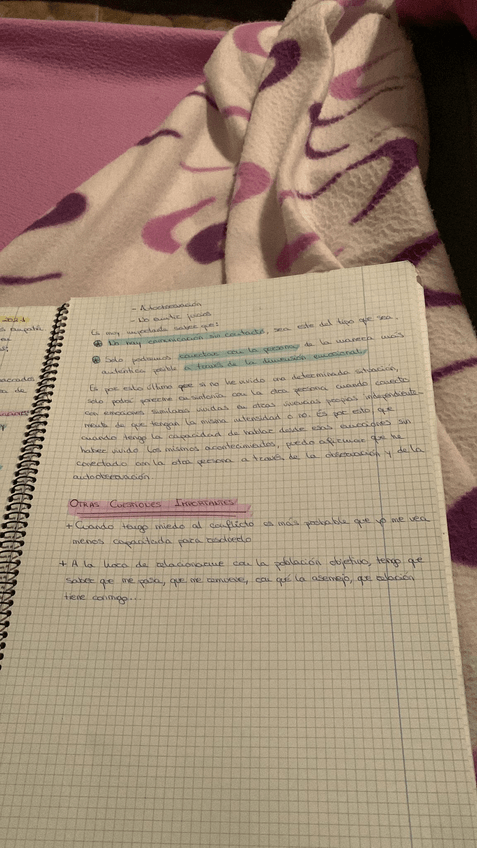 - Autoobservación
- No emitir juicios
Es muy importante saber que:
No hay comunicación sin contacto, sea este del tipo que sea.
Solo podremos conectar con la persona de la manera más
auténtica posible a través de la dimensión emocional.
Es por esta último que si no he vivido una determinada situación,
solo podré ponerme en sintonía con la otra persona cuando conecto
con emociones similares vividas en otras vivencias propias independiente-
mente de que tengan la misma intensidad o no. Es por esto, que
cuando tengo la capacidad de hablar desde esas emociones sin
haber vivido los mismos acontecimientos, puedo afirmar que he
conectado con la otra persona a través de la observación y de la
autoobservación.
OTRAS CUESTIONES IMPORTANTES
+ Cuando tengo miedo al conflicto es más probable que yo me vea
menos capacitada para
+ A la hora de relacionarme con la población objetivo, tengo que
saber que me pasa, que me conmueve, con qué la asemejo, que relación
tiene conmigo...